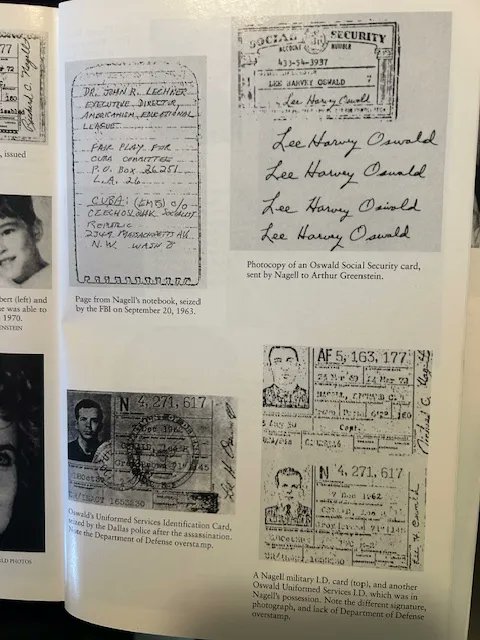 77
Michael C. Nagell
, issued
bert (left) and
e was able to
1970.
ENSTEIN
LD PHOTOS
DR. JOHN R. LECHNER
EXECUTIVE DIRECTOR,
AMERICANISM EDUCATIONAL
LEAGUE.
FAIR PLAY FOR
CUBA COMMITTEE
P.O. BOX 26251
L.A. 26
CUBA: (EMB) C/O
CZECHOSLOVAK SOCIALIST
REPUBLIC
2349 MASSACHUSETTS AV.
N.W. WASH 8
Page from Nagell's notebook, seized
by the FBI on September 20, 1963.
SOCIAL SECURITY
ACCOUNT NUMBER
433-54-3937
LEE HARVEY OSWALD
Lee Harvey Oswald
Lee Harvey Oswald
Lee Harvey Oswald
Lee Harvey Oswald
Lee Harvey Oswald
Photocopy of an Oswald Social Security card,
sent by Nagell to Arthur Greenstein.
N 4,271,617
Oswald's Uniformed Services Identification Card,
seized by the Dallas police after the assassination.
Note the Department of Defense overstamp.
AF 5,163,177
Capt.
N 4,271,617
7 Dec 1962
A Nagell military I.D. card (top), and another
Oswald Uniformed Services I.D. which was in
Nagell's possession. Note the different signature,
photograph, and lack of Department of Defense
overstamp.